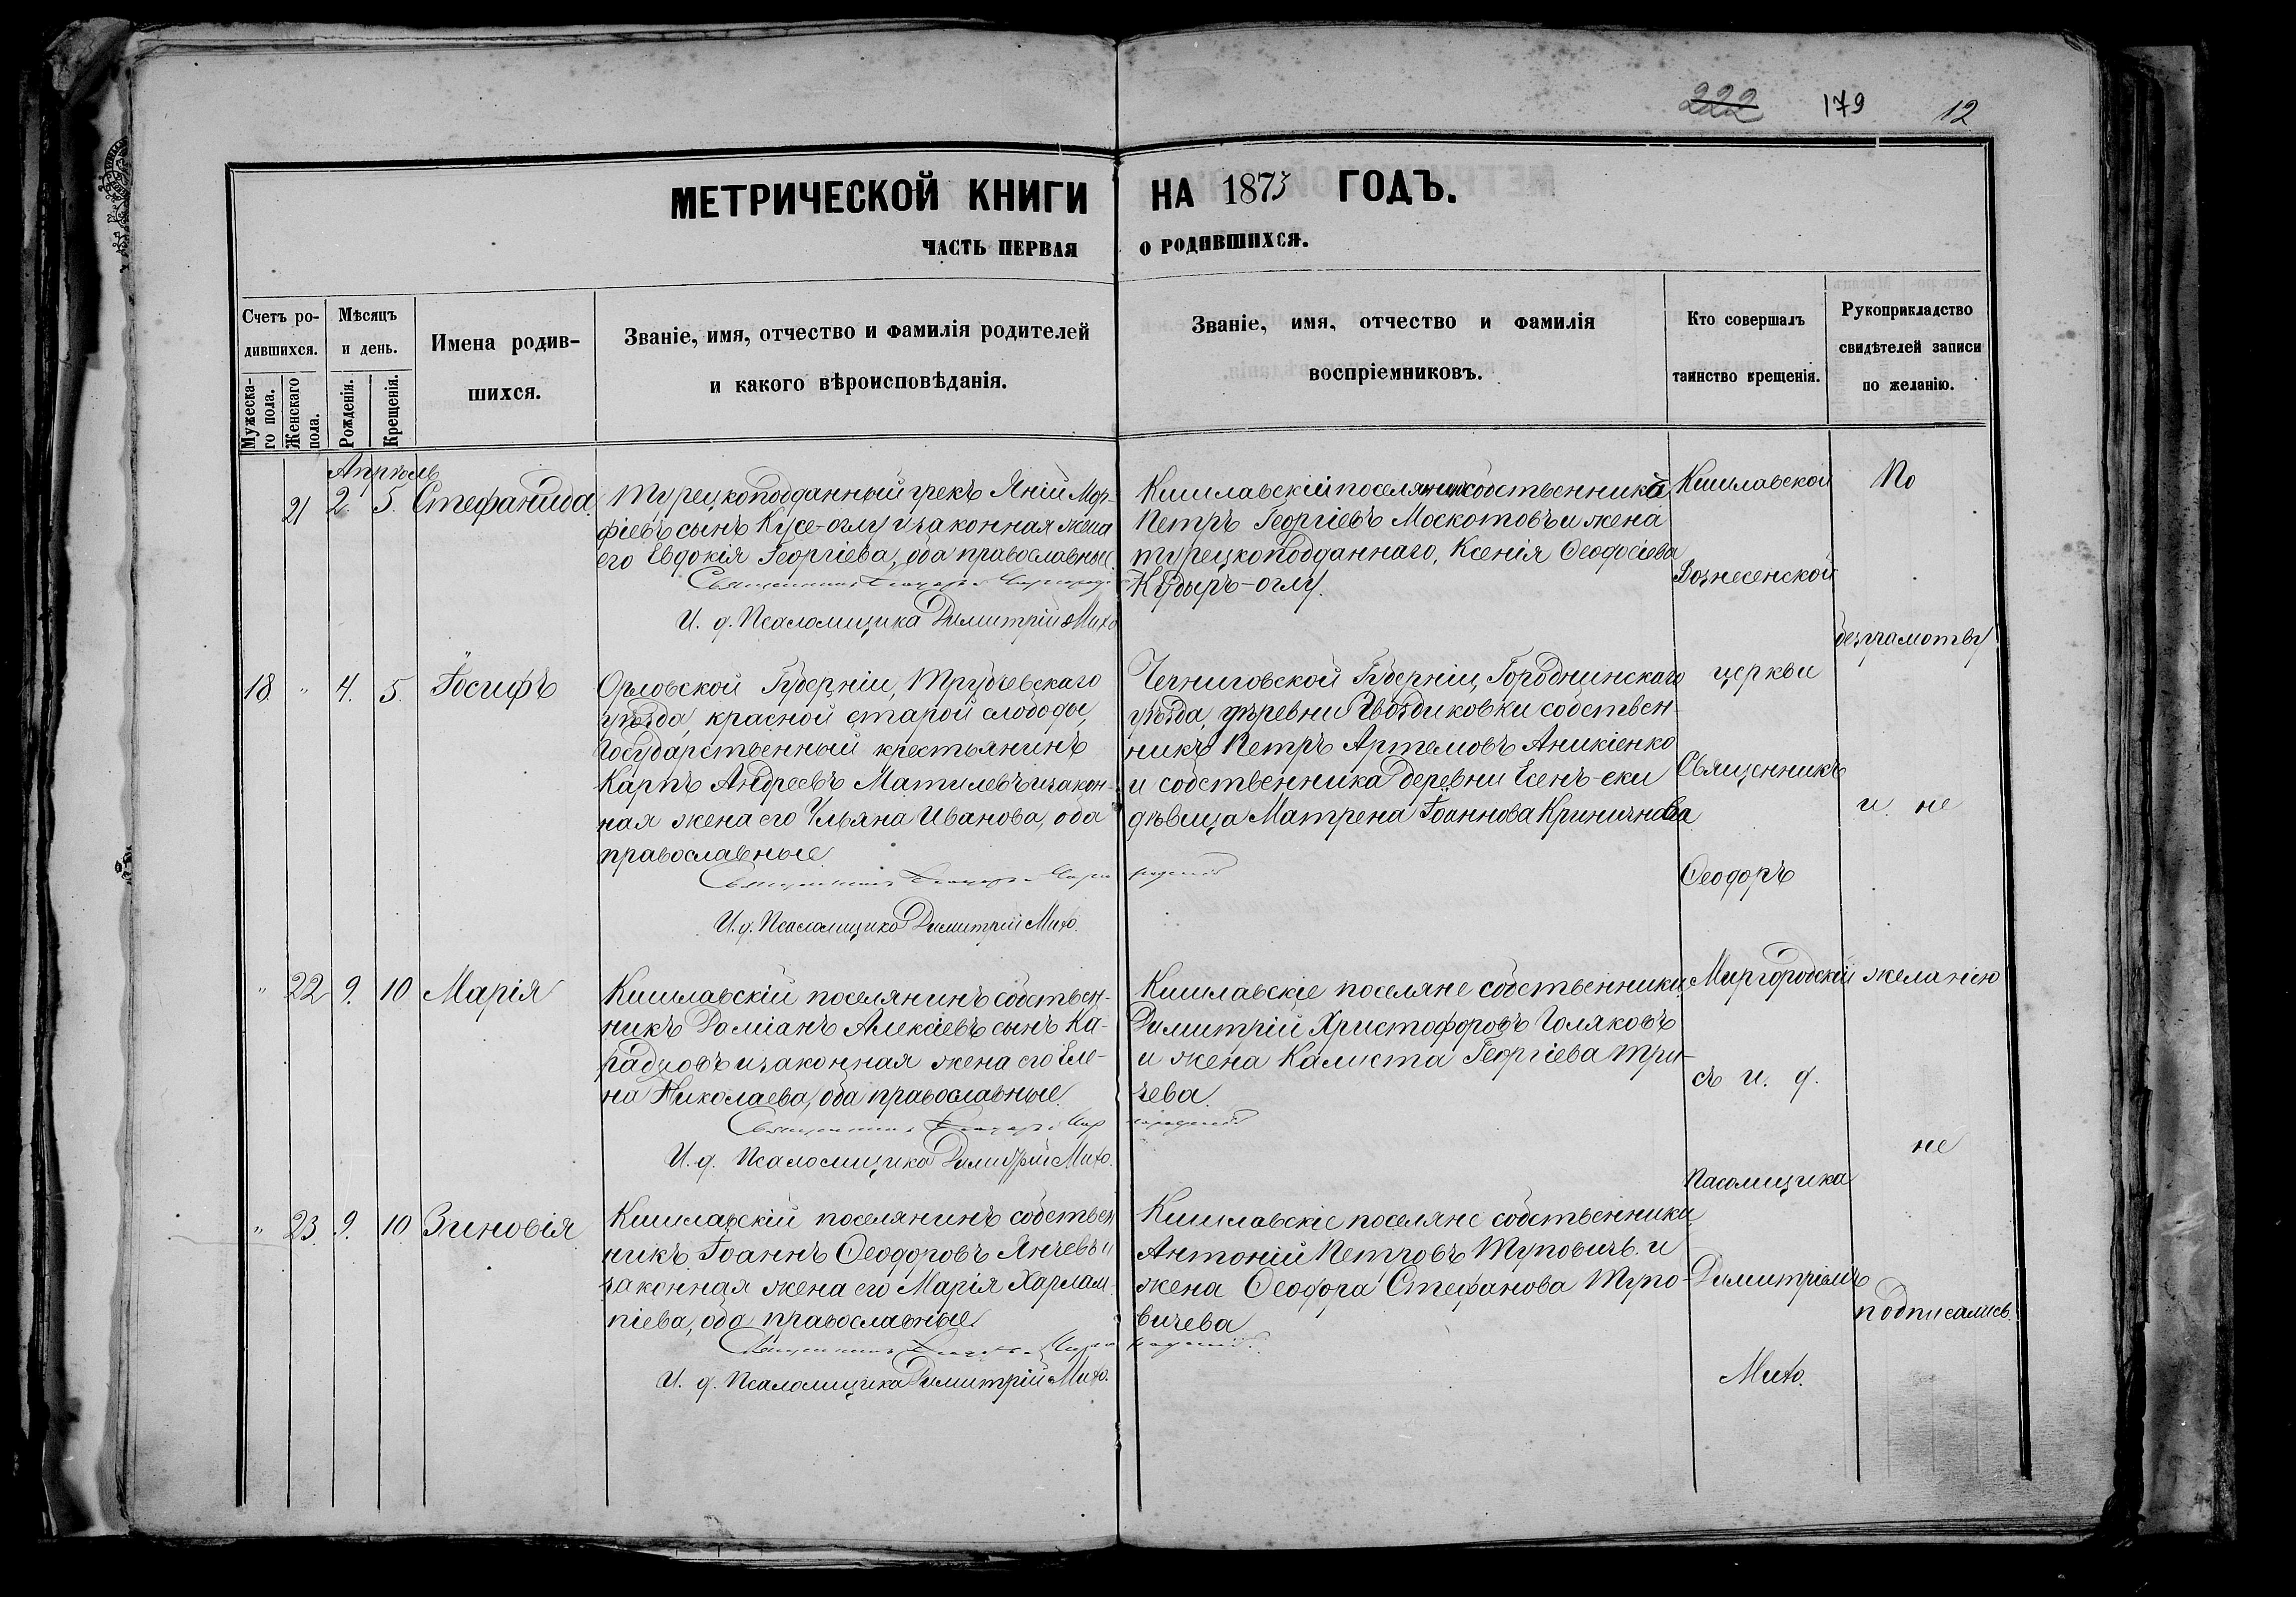 222 179 12
МЕТРИЧЕСКОЙ КНИГИ НА 1873 ГОДЪ.
ЧАСТЬ ПЕРВАЯ О РОДИВШИХСЯ.
Счетъ ро-
дившихся.
Мужеска-
го пола.
Женскаго
пола.
Мѣсяцъ
и день.
Рожденія.
Крещенія.
Имена родив-
шихся.
Званіе, имя, отчество и фамилія родителей
и какого вѣроисповѣданія.
Званіе, имя, отчество и фамилія
воспріемниковъ.
Кто совершалъ
таинство крещенія.
Рукоприкладство
свидѣтелей записи
по желанію.
Апрѣль
21 2. 5. Стефанида
Турецкоподданный грекъ Яній Мор-
фіевъ сынъ Кусе-оглу и законная жена
его Евдокія Георгіева, оба православные.
Священникъ
И. д. Псаломщика Димитрій Михо
Кишлавскій поселянинъ собственникъ
Петръ Георгіевъ Москотовъ и жена
турецкоподданнаго, Ксенія Ѳеодосіева
Кудыръ-оглу.
18. " 4. 5. Іосифъ
Орловской Губерніи, Трубчевскаго
уѣзда, красной старой слободы,
Государственный крестьянинъ
Карпъ Андреевъ Матилевъ и закон-
ная жена его Ульяна Иванова, оба
православные.
Священникъ
И. д. Псаломщика Димитрій Михо.
Черниговской Губерніи, Городнинскаго
уѣзда, деревни Гвоздиковки собствен-
никъ Петръ Артемовъ Аникіенко
и собственника деревни Есенъ-еки
дѣвица Матрена Іоаннова Кринична
" 22 9. 10 Марія
Кишлавскій поселянинъ собствен-
никъ Даміанъ Алексіевъ сынъ Ка-
раджовъ и законная жена его Еле-
на Николаева, оба православные.
Священникъ
И. д. Псаломщика Димитрій Михо.
Кишлавскіе поселяне собственники
Димитрій Христофоровъ Голяковъ
и жена Калиста Георгіева Три-
чева.
" 23. 9. 10 Зиновія
Кишлавскій поселянинъ собствен
никъ Іоаннъ Ѳеодоровъ Янчевъ и
законная жена его Марія Харлам-
піева, оба православные.
Священникъ
И. д. Псаломщика Димитрій Михо.
Кишлавскіе поселяне собственники
Антоній Петровъ Туповичъ и
жена Ѳеодора Стефанова Тупо-
вичева
Кишлавской
Вознесенской
церкви
Священникъ
Ѳеодоръ
Миргородскій
съ и. д.
Псаломщика
Димитріемъ
Михо.
По
безграмотву
и не
желанію
не
подписались.